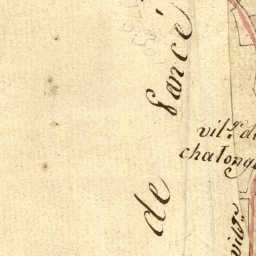 de Sarcé
vil.ge du
chalonge